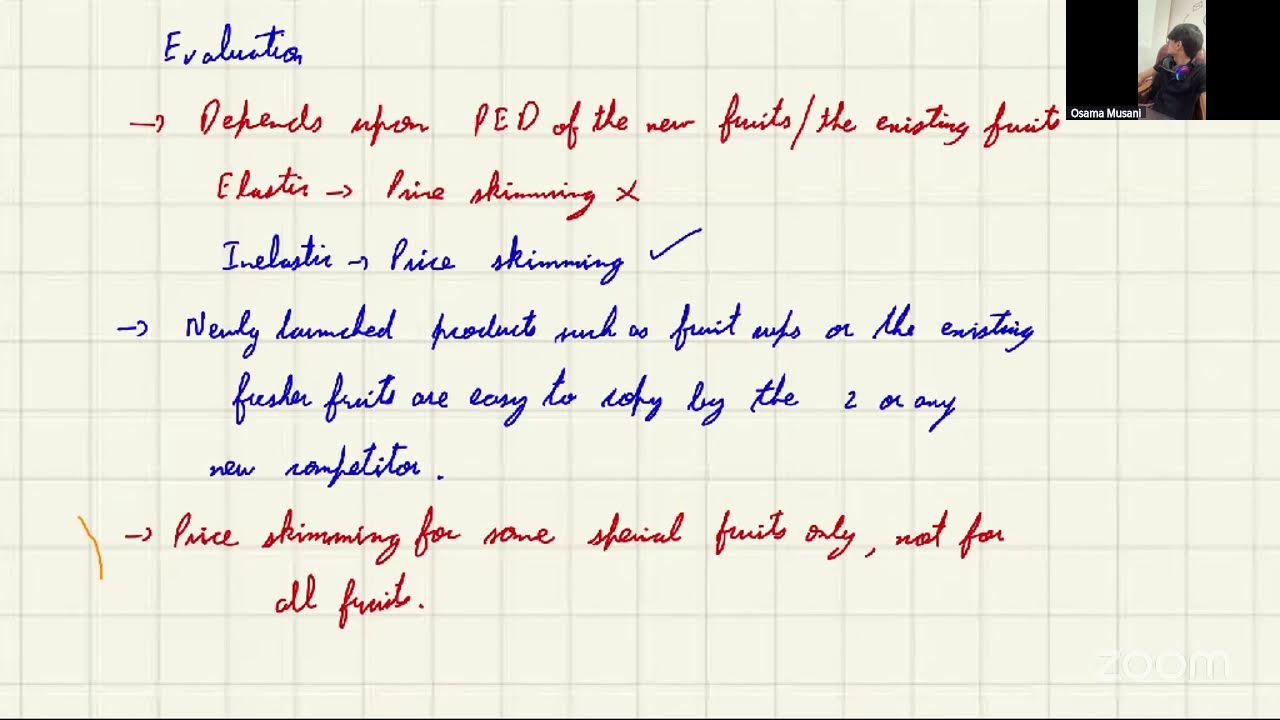 Evaluation
Osama Musani
→ Depends upon PED of the new fruits/the existing fruits
Elastic → Price skimming ×
Inelastic → Price skimming ✓
→ Newly launched products such as fruit cups or the existing
fresher fruits are easy to copy by the 2 or any
new competitor.
→ Price skimming for some special fruits only, not for
all fruits.
zoom